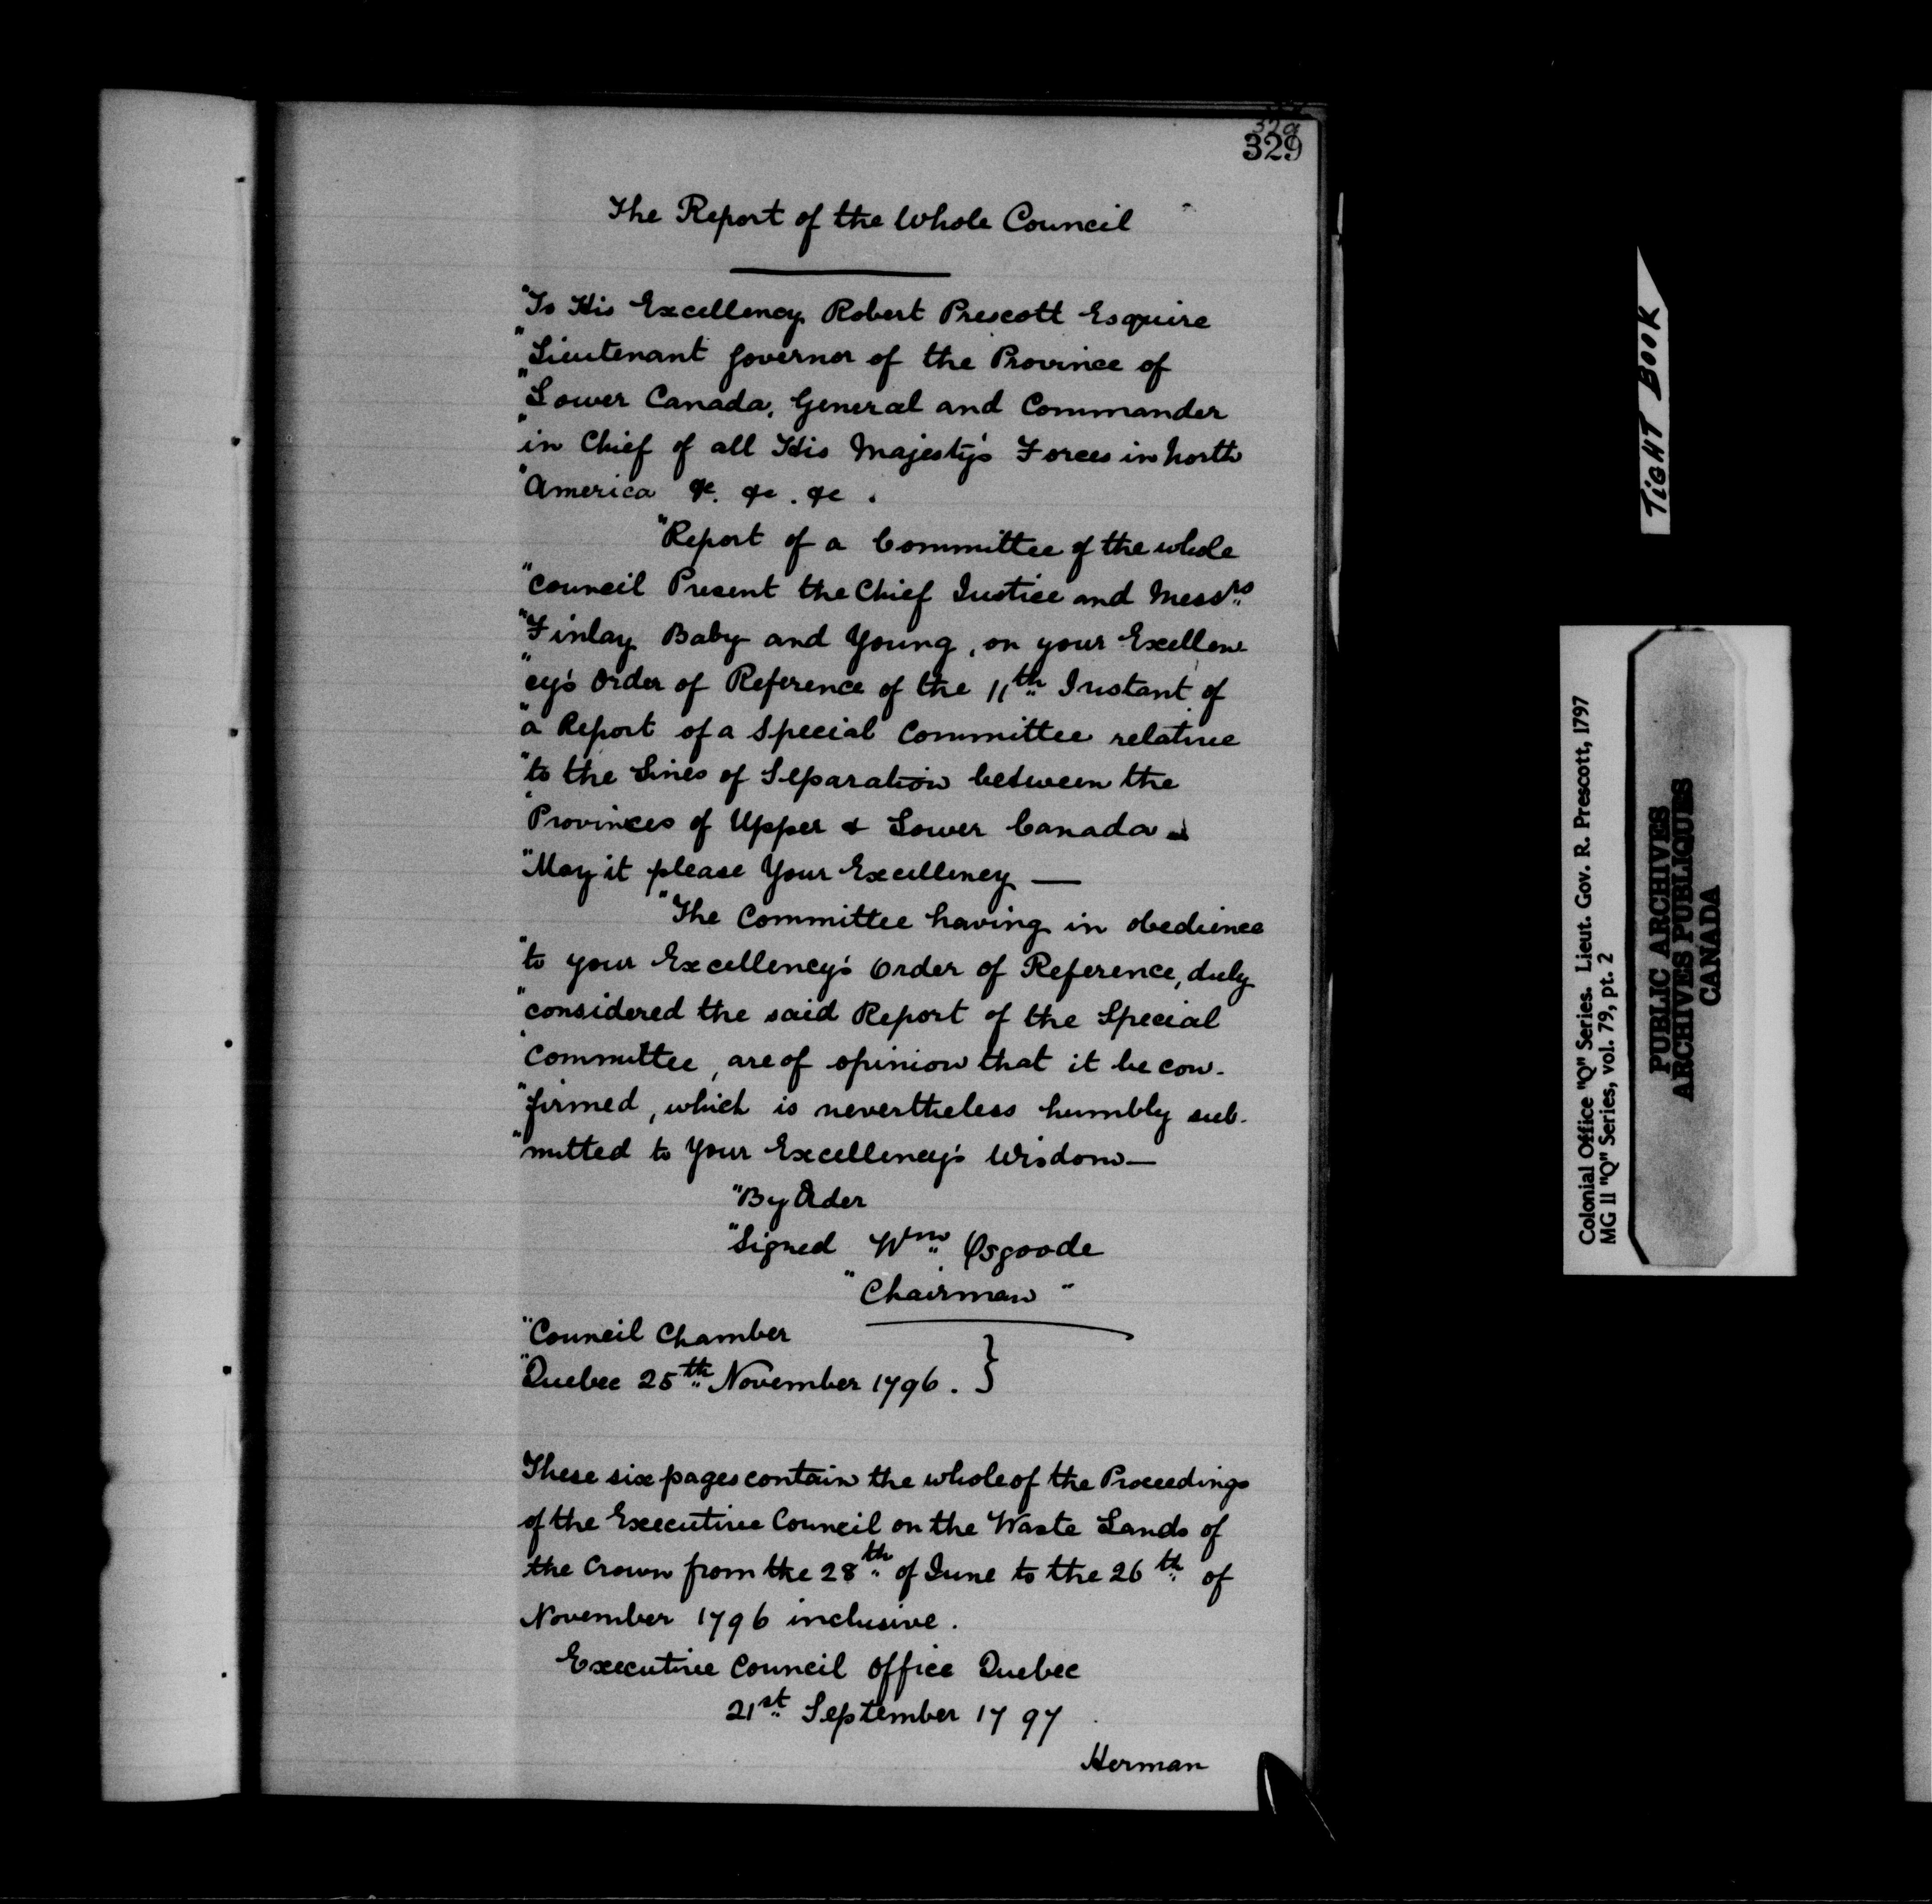 329
329
The Report of the Whole Council
"To His Excellency Robert Prescott Esquire
"Lieutenant Governor of the Province of
"Lower Canada, General and Commander
"in Chief of all His Majesty's Forces in North
"America &c. &c. &c.
"Report of a Committee of the whole
"Council Present the Chief Justice and Messrs
"Finlay Baby and Young, on your Excellen
"cy's Order of Reference of the 11th Instant of
"a Report of a Special Committee relative
"to the Lines of Separation between the
"Provinces of Upper & Lower Canada
"May it please Your Excellency —
"The Committee having in obedience
"to your Excellency's Order of Reference, duly
"considered the said Report of the Special
"Committee, are of opinion that it be con-
"firmed, which is nevertheless humbly sub-
"mitted to Your Excellency's Wisdom —
"By Order
"Signed Wm Osgoode
"Chairman"
"Council Chamber
"Quebec 25th November 1796. }
These six pages contain the whole of the Proceedings
of the Executive Council on the Waste Lands of
the Crown from the 28th of June to the 26th of
November 1796 inclusive.
Executive Council Office Quebec
21st September 1797
Herman
TIGHT BOOK
Colonial Office "Q" Series. Lieut. Gov. R. Prescott, 1797
MG 11 "Q" Series, vol. 79, pt. 2
PUBLIC ARCHIVES
ARCHIVES PUBLIQUES
CANADA